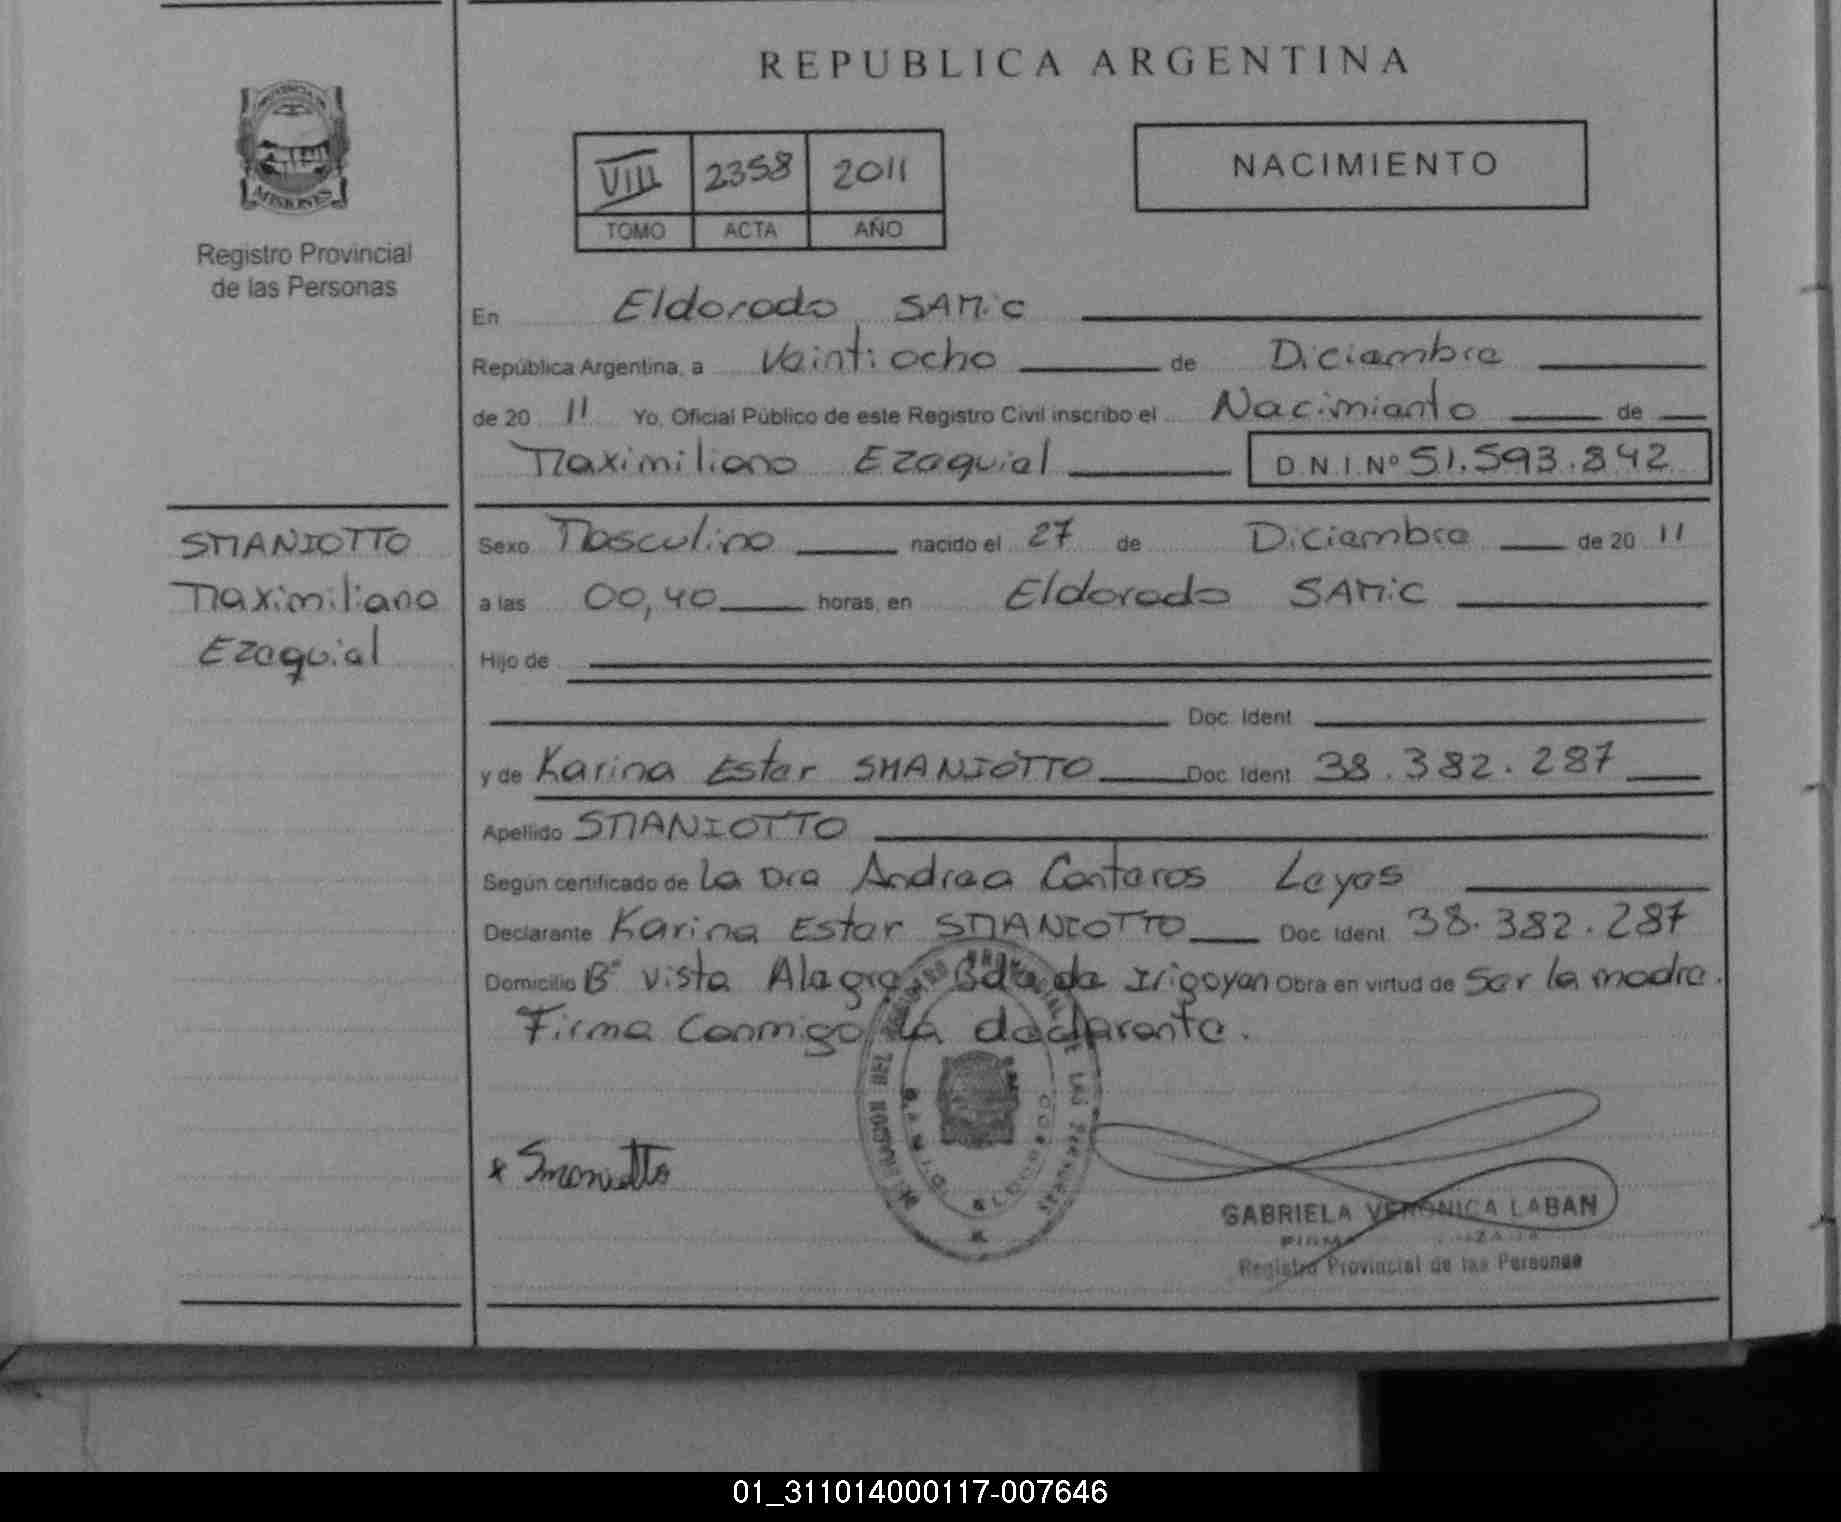 REPUBLICA ARGENTINA
PROVINCIA DE
MISIONES
Registro Provincial
de las Personas
VIII 2358 2011
TOMO ACTA AÑO
NACIMIENTO
En Eldorado SAMiC
República Argentina, a Veintiocho de Diciembre
de 20 11 Yo, Oficial Público de este Registro Civil inscribo el Nacimiento de
Maximiliano Ezequiel D.N.I. Nº 51.593.842
SMANIOTTO
Maximiliano
Ezequiel
Sexo Masculino nacido el 27 de Diciembre de 20 11
a las 00,40 horas, en Eldorado SAMiC
Hijo de
Doc. Ident.
y de Karina Ester SMANIOTTO Doc. Ident. 38.382.287
Apellido SMANIOTTO
Según certificado de La Dra Andrea Conteros Leyes
Declarante Karina Ester SMANIOTTO Doc. Ident. 38.382.287
Domicilio Bº Vista Alegre Bdo de Irigoyen Obra en virtud de Ser la madre.
Firma Conmigo la declarante.
x Smaniotto
ELDORADO
GABRIELA VERONICA LABAN
FIRMA
Registro Provincial de las Personas
01_311014000117-007646